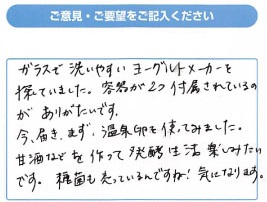 ご意見・ご要望をご記入ください
ガラスで洗いやすいヨーグルトメーカーを
探していました。容器が2つ付属されているの
がありがたいです。
今、届き、まず、温泉卵を使ってみました。
甘酒などを作って発酵生活楽しみたい
です。糖菌も売っているんですね!気になります。